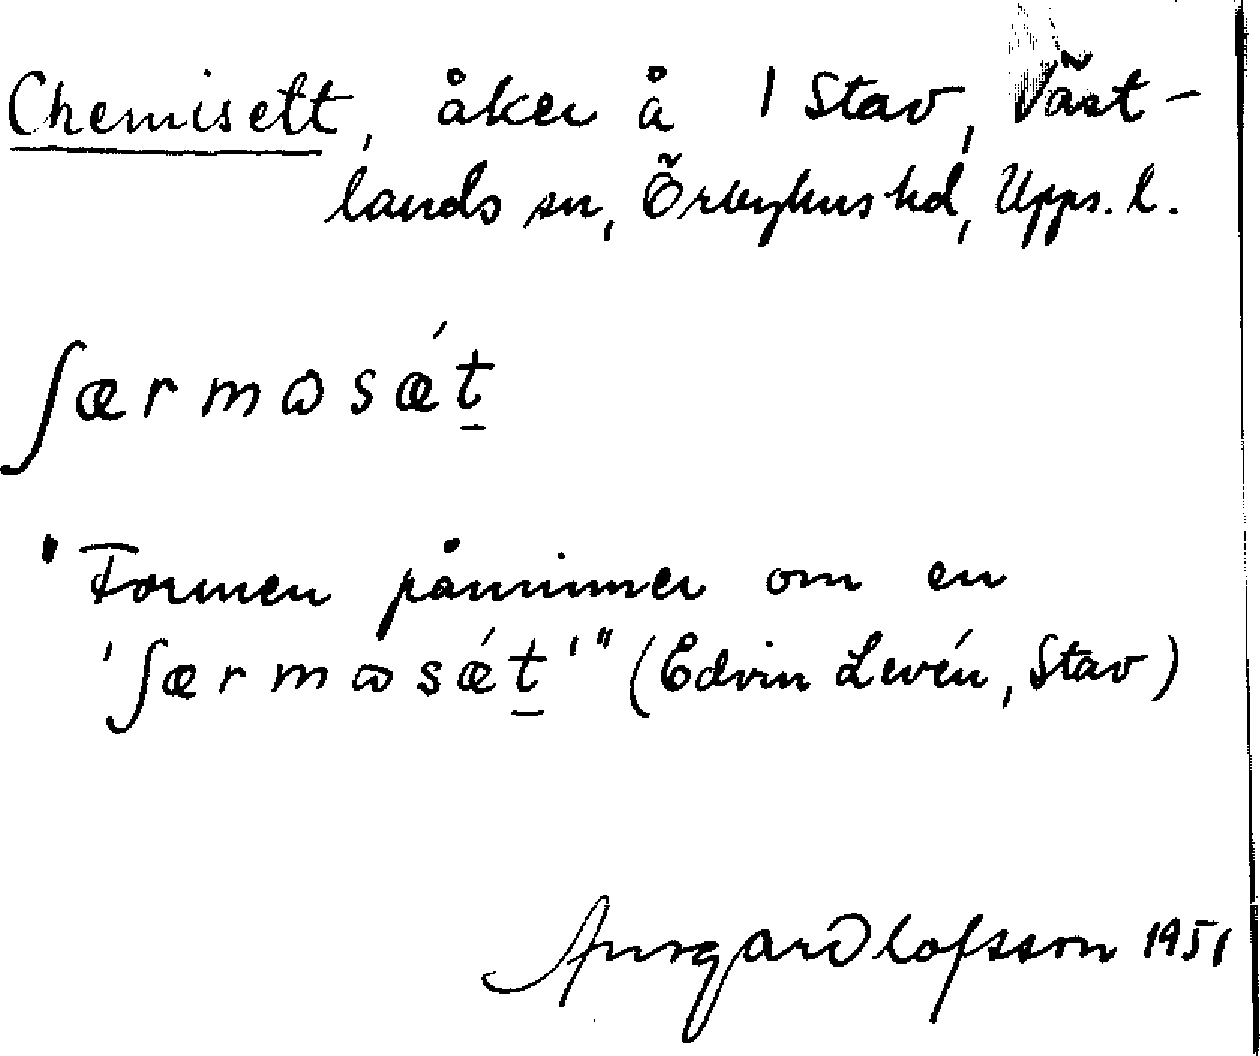 Chemisett, åker å 1 Stav, Väst-
lands sn, Örbyhus hd, Upps. l.
ʃærmɷsǽt̠
"Formen påminner om en
'ʃærmɷsǽt̠'" (Edvin Levén, Stav)
Olofsson 1951